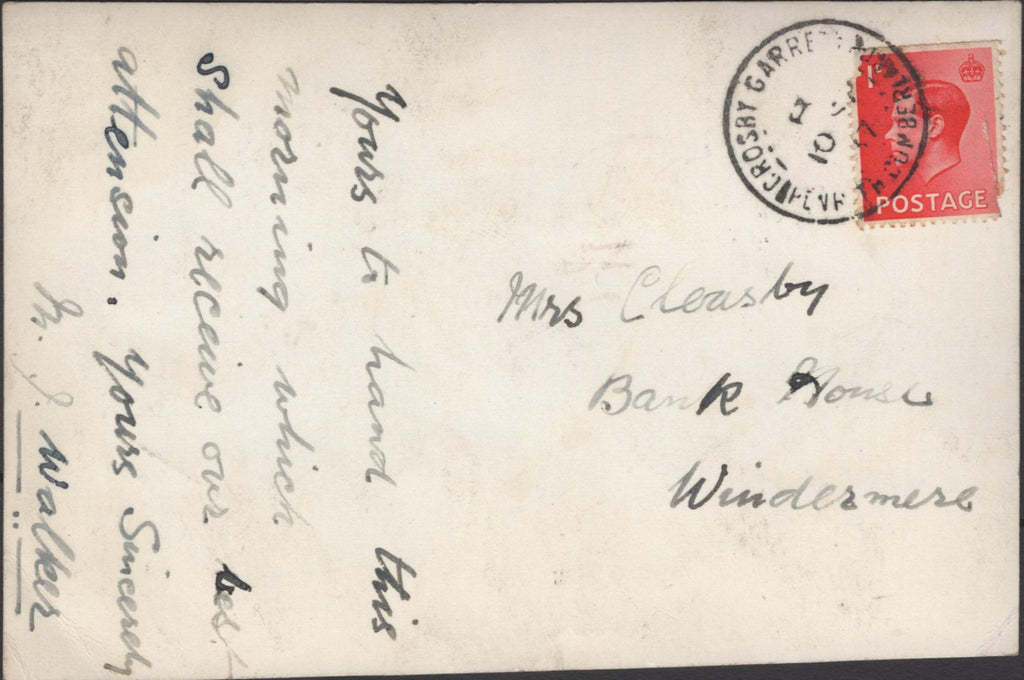 Yours to hand this
morning which
shall receive our best
attension. Yours Sincerely
J. Walker
Mrs Cleasby
Bank House
Windermere
CROSBY GARRETT
10
1D
POSTAGE